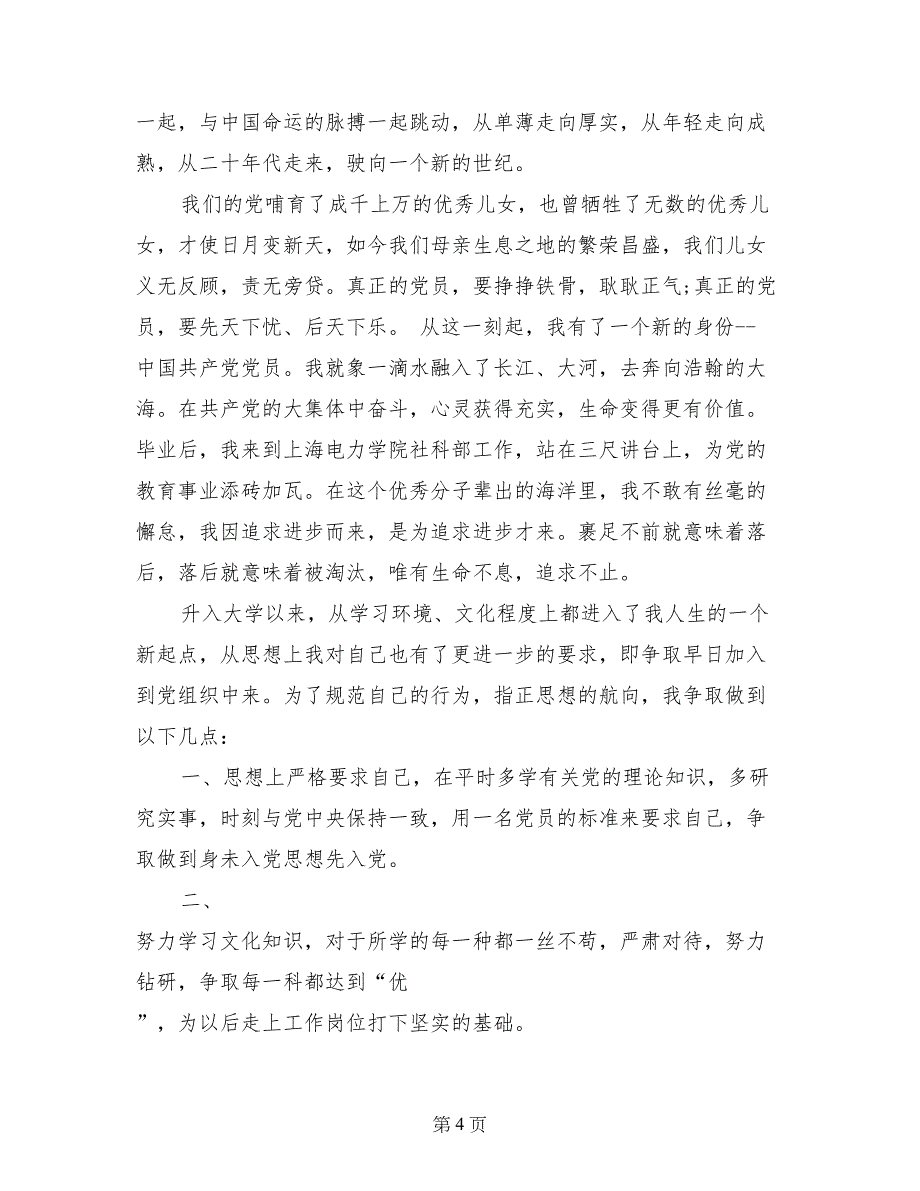 一起，与中国命运的脉搏一起跳动，从单薄走向厚实，从年轻走向成
熟，从二十年代走来，驶向一个新的世纪。
我们的党哺育了成千上万的优秀儿女，也曾牺牲了无数的优秀儿
女，才使日月变新天，如今我们母亲生息之地的繁荣昌盛，我们儿女
义无反顾，责无旁贷。真正的党员，要挣挣铁骨，耿耿正气;真正的党
员，要先天下忧、后天下乐。 从这一刻起，我有了一个新的身份--
中国共产党党员。我就象一滴水融入了长江、大河，去奔向浩翰的大
海。在共产党的大集体中奋斗，心灵获得充实，生命变得更有价值。
毕业后，我来到上海电力学院社科部工作，站在三尺讲台上，为党的
教育事业添砖加瓦。在这个优秀分子辈出的海洋里，我不敢有丝毫的
懈怠，我因追求进步而来，是为追求进步才来。裹足不前就意味着落
后，落后就意味着被淘汰，唯有生命不息，追求不止。
升入大学以来，从学习环境、文化程度上都进入了我人生的一个
新起点，从思想上我对自己也有了更进一步的要求，即争取早日加入
到党组织中来。为了规范自己的行为，指正思想的航向，我争取做到
以下几点：
一、思想上严格要求自己，在平时多学有关党的理论知识，多研
究实事，时刻与党中央保持一致，用一名党员的标准来要求自己，争
取做到身未入党思想先入党。
二、
努力学习文化知识，对于所学的每一种都一丝不苟，严肃对待，努力
钻研，争取每一科都达到“优
”，为以后走上工作岗位打下坚实的基础。
第 4 页